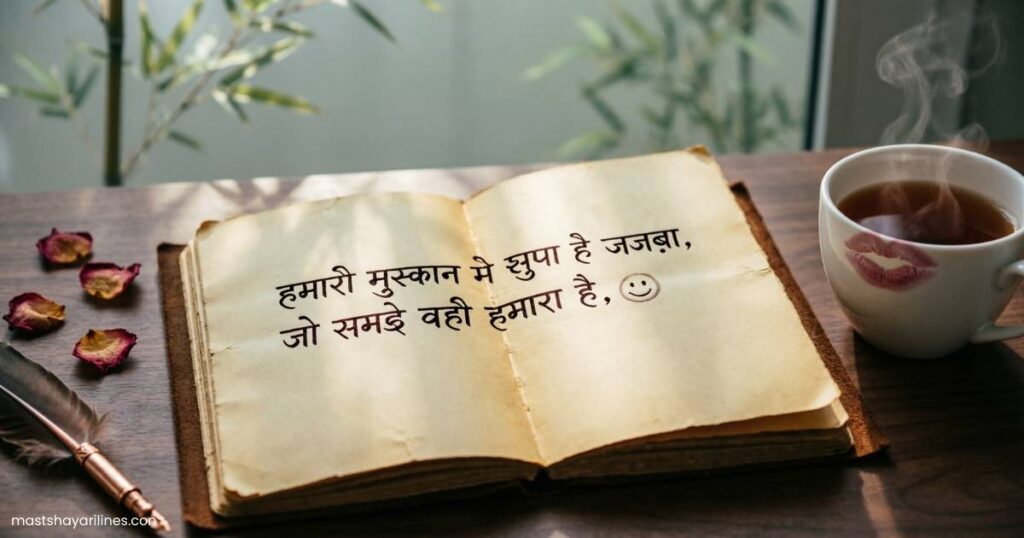 हमारी मुस्कान मे झुपा है जजब़ा,
जो समझे वही हमारा है, ☺
mastshayarilines.com